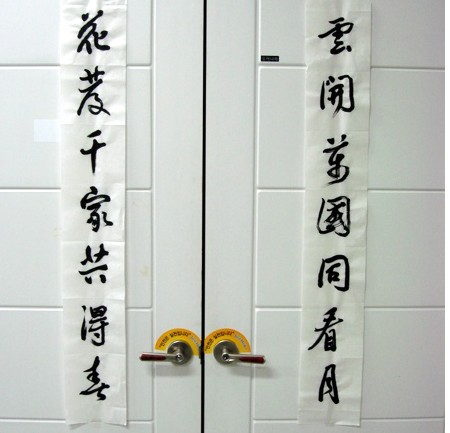 雲開萬國同看月
花發千家共得春